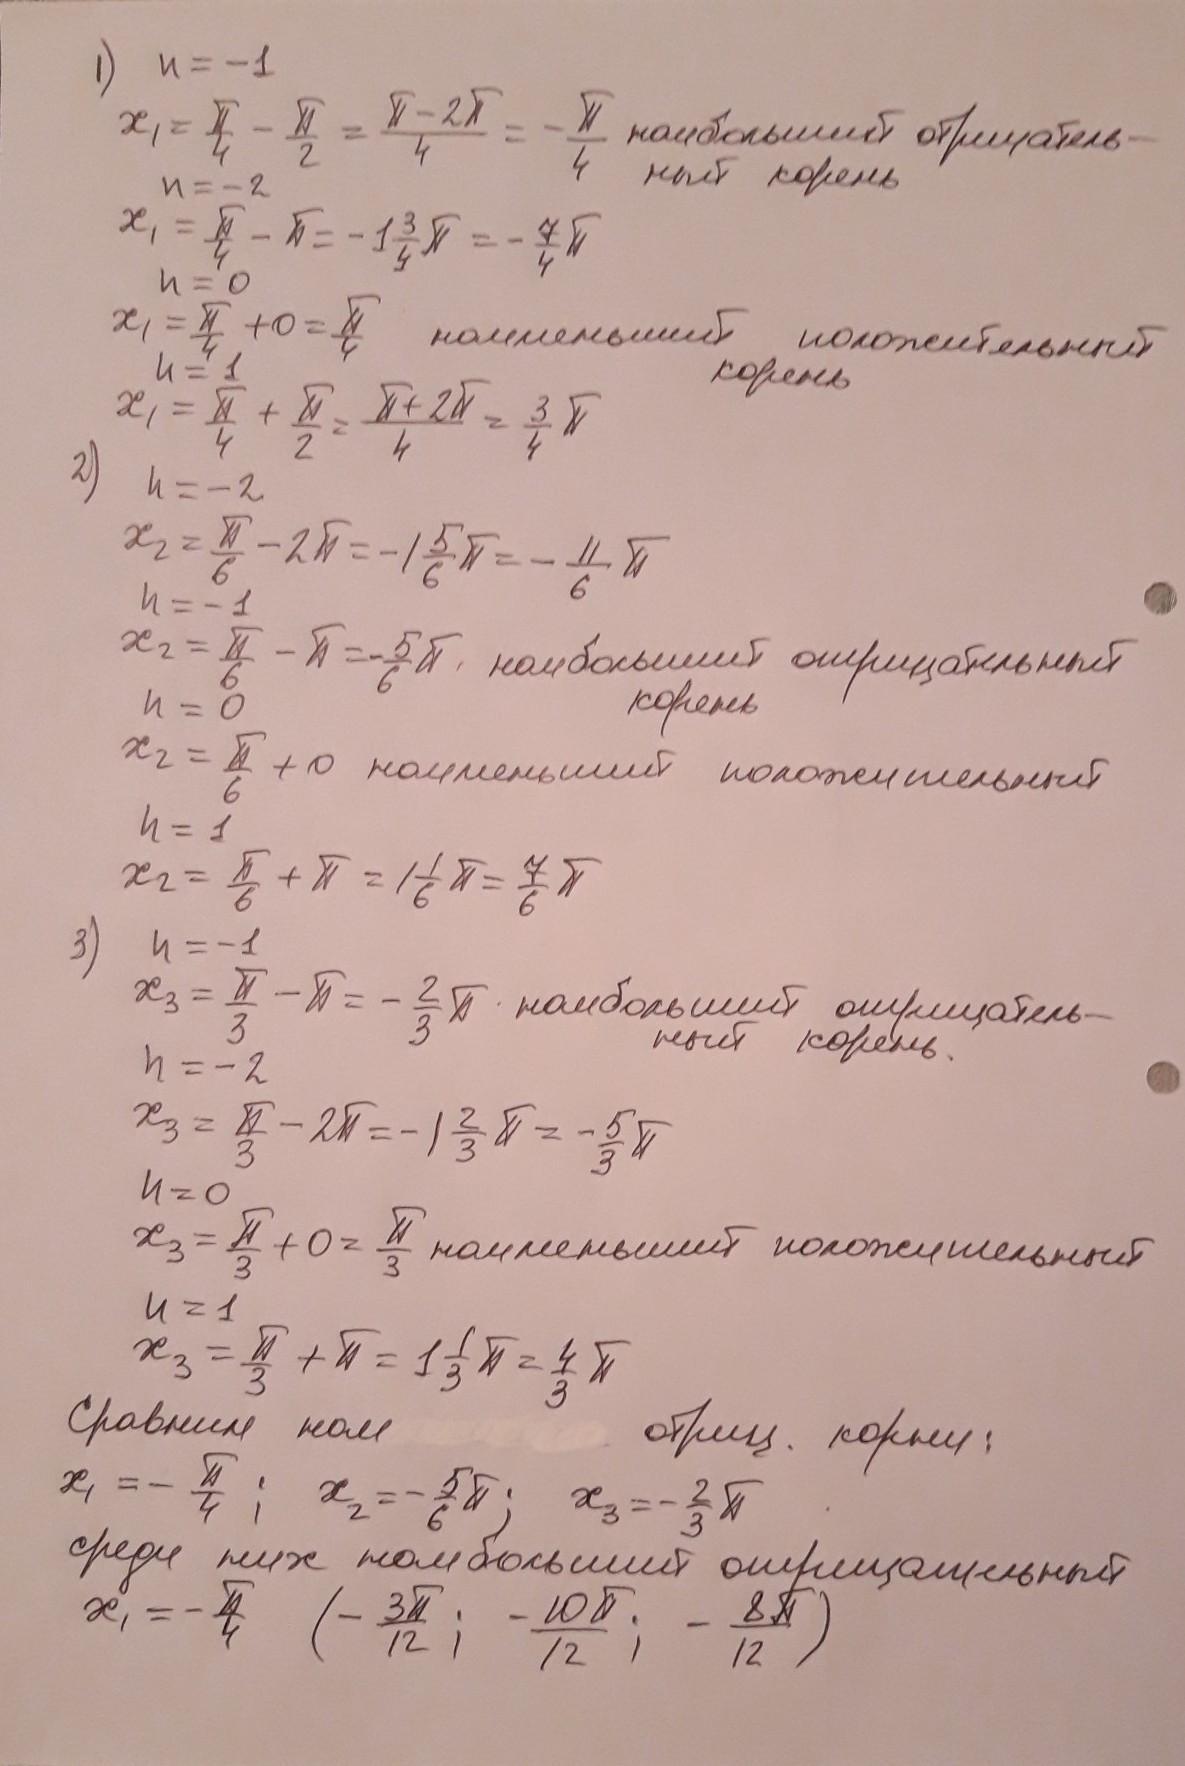 1) n = -1
x₁ = π/4 - π/2 = (π - 2π)/4 = -π/4 наибольший отрицатель-
ный корень
n = -2
x₁ = π/4 - π = -1 3/4 π = -7/4 π
n = 0
x₁ = π/4 + 0 = π/4 наименьший положительный
корень
n = 1
x₁ = π/4 + π/2 = (π + 2π)/4 = 3/4 π
2) n = -2
x₂ = π/6 - 2π = -1 5/6 π = -11/6 π
n = -1
x₂ = π/6 - π = -5/6 π. наибольший отрицательный
корень
n = 0
x₂ = π/6 + 0 наименьший положительный
n = 1
x₂ = π/6 + π = 1 1/6 π = 7/6 π
3) n = -1
x₃ = π/3 - π = -2/3 π. наибольший отрицатель-
ный корень.
n = -2
x₃ = π/3 - 2π = -1 2/3 π = -5/3 π
n = 0
x₃ = π/3 + 0 = π/3 наименьший положительный
n = 1
x₃ = π/3 + π = 1 1/3 π = 4/3 π
Сравним наи отриц. корни:
x₁ = -π/4; x₂ = -5/6 π; x₃ = -2/3 π
среди них наибольший отрицательный
x₁ = -π/4 (-3π/12; -10π/12; -8π/12)